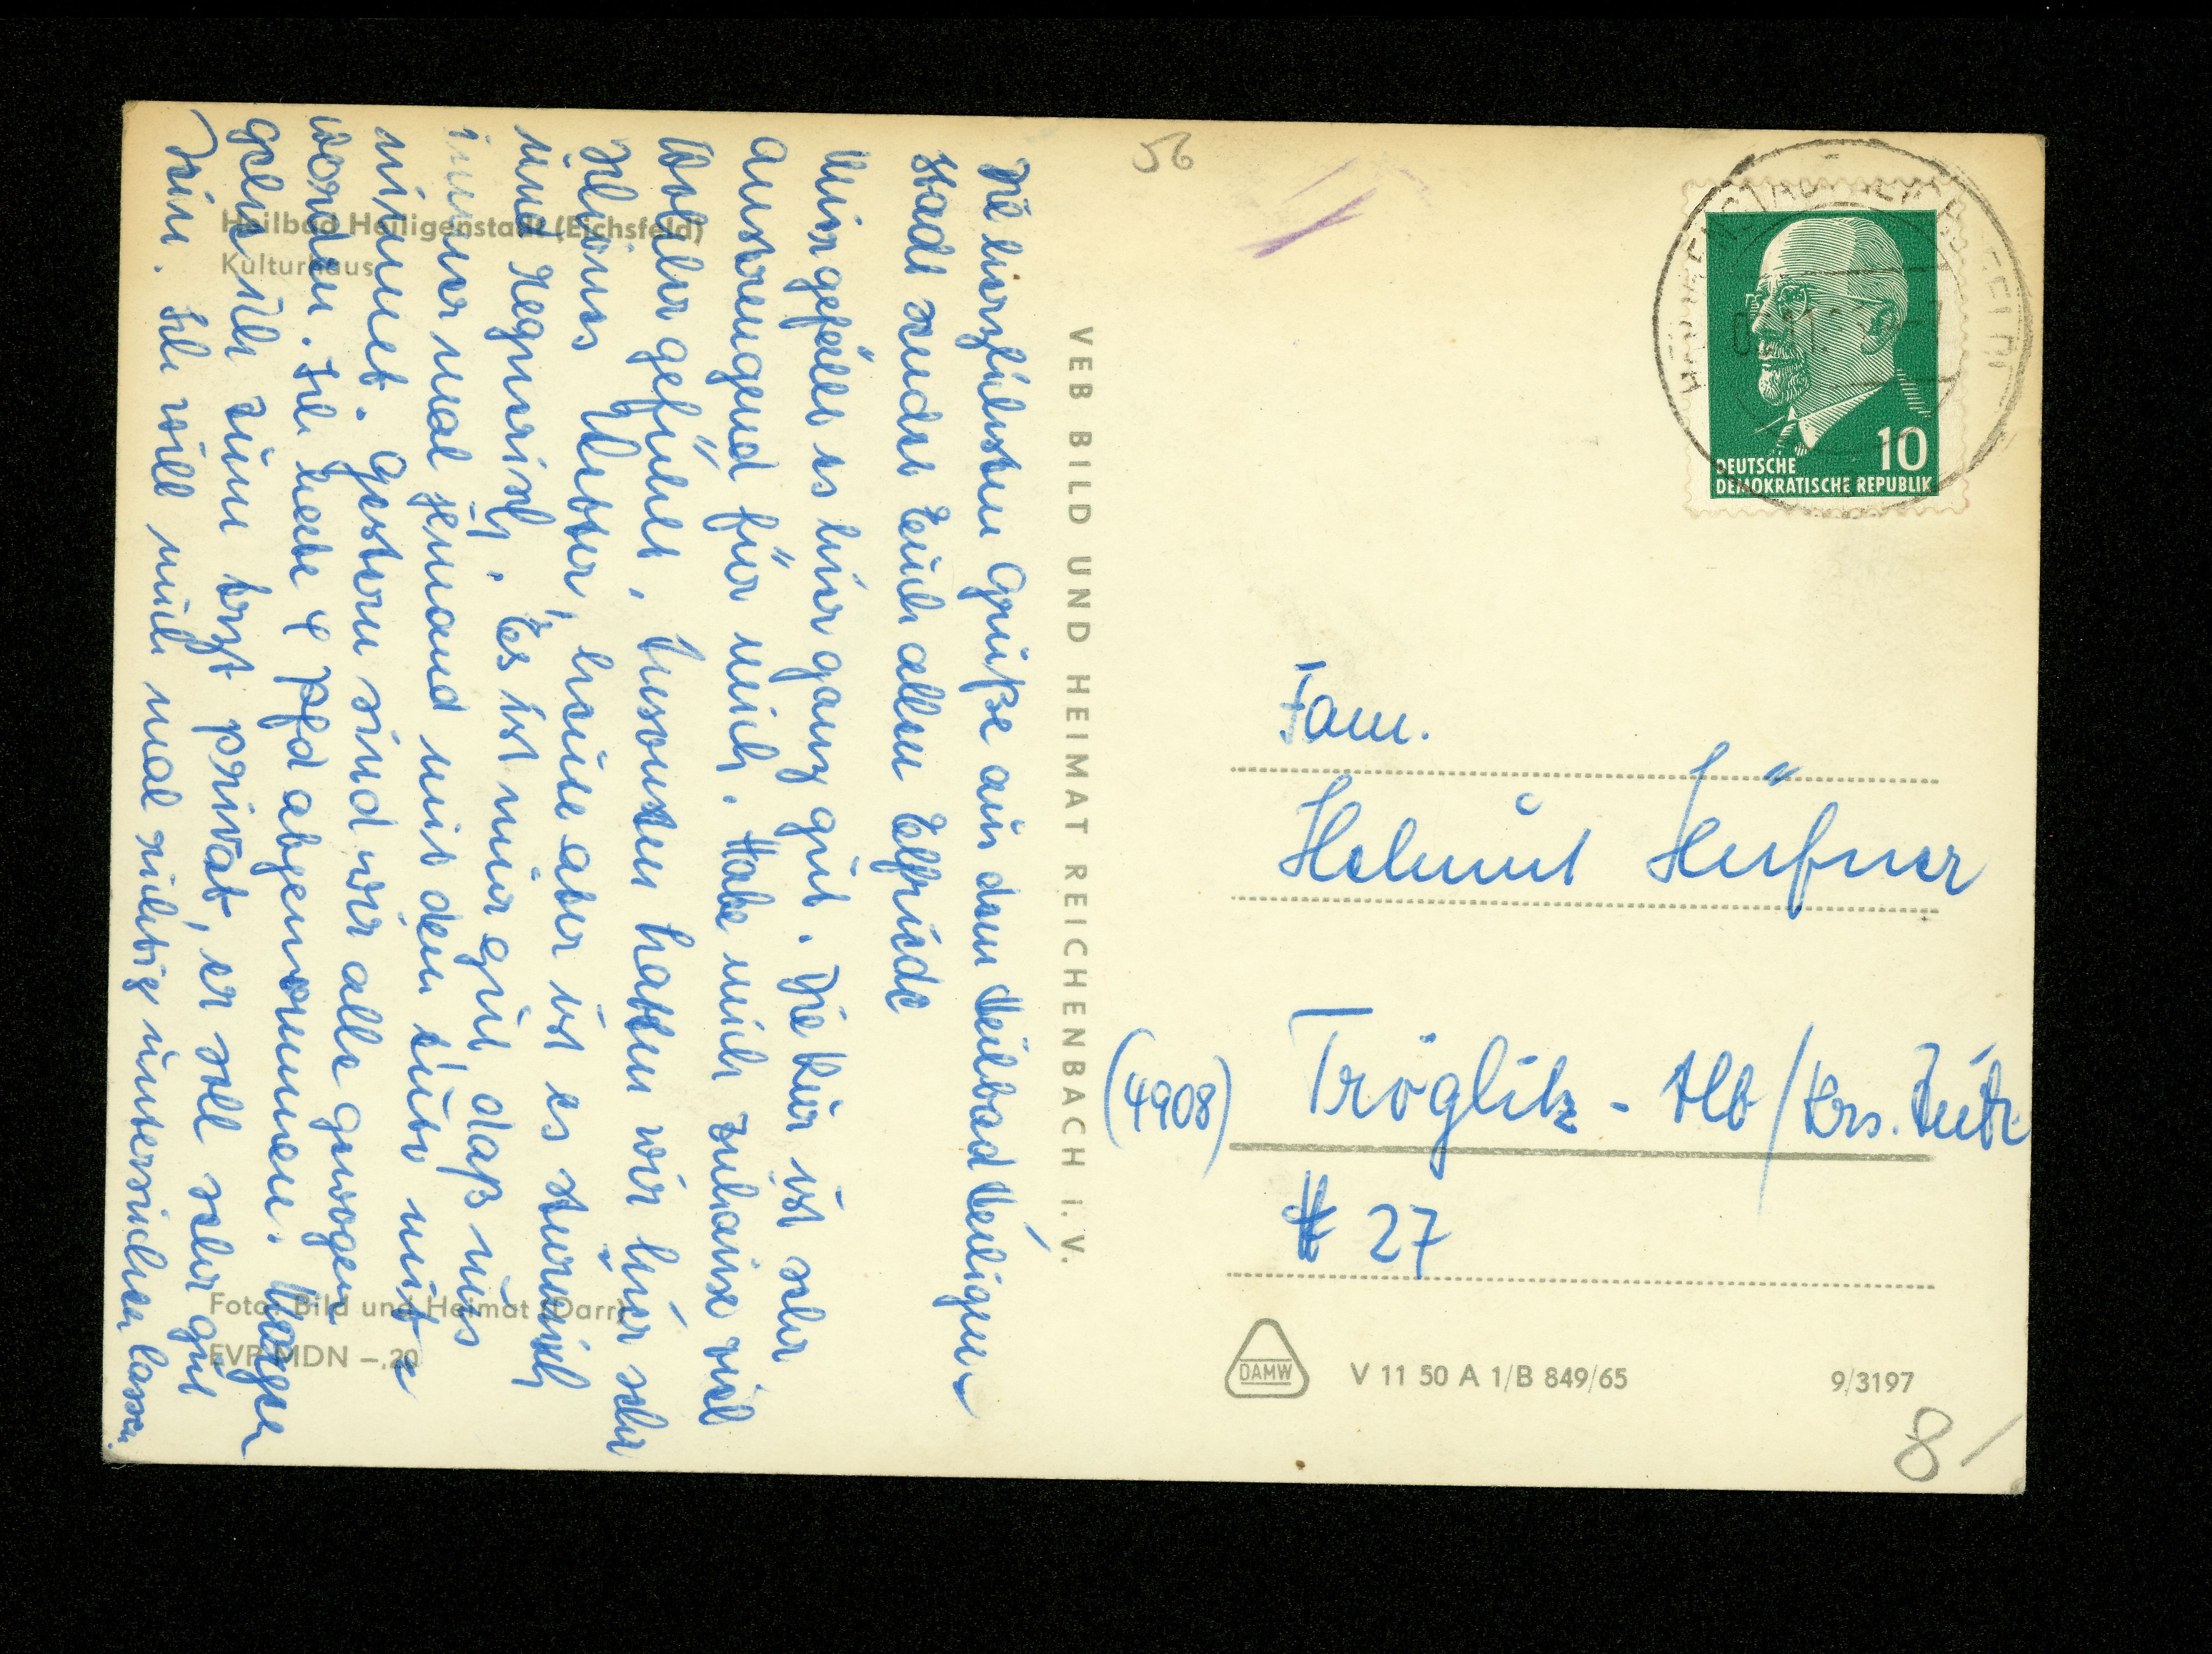 Heilbad Heiligenstadt (Eichsfeld)
Kulturhaus
Die herzlichsten Grüße aus dem Heilbad Heiligen
stadt sendet Euch allen Elfriede
Mir gefällt es hier ganz gut. Die Kur ist sehr
anstrengend für mich. Habe mich zuhause viel
wohler gefühlt. Ansonsten hatten wir hier sehr
schönes Wetter, heute aber ist es stürmisch
und regnerisch. Es ist mir gut daß uns
immer mal jemand mit dem Auto mit
nimmt. Gestern sind wir alle gewogen
worden. Ich habe 4 Pfd abgenommen. Morgen
gehe ich zum Arzt privat, er soll sehr gut
sein. Ich will mich mal richtig untersuchen lassen.
VEB BILD UND HEIMAT REICHENBACH I. V.
56
10
DEUTSCHE
DEMOKRATISCHE REPUBLIK
Fam.
Helmut Hüfner
(4908) Tröglitz - Hlb/Krs. Zeitz
27
Foto: Bild und Heimat (Darr)
EVP MDN –,20
DAMW
V 11 50 A 1/B 849/65
9/3197
8